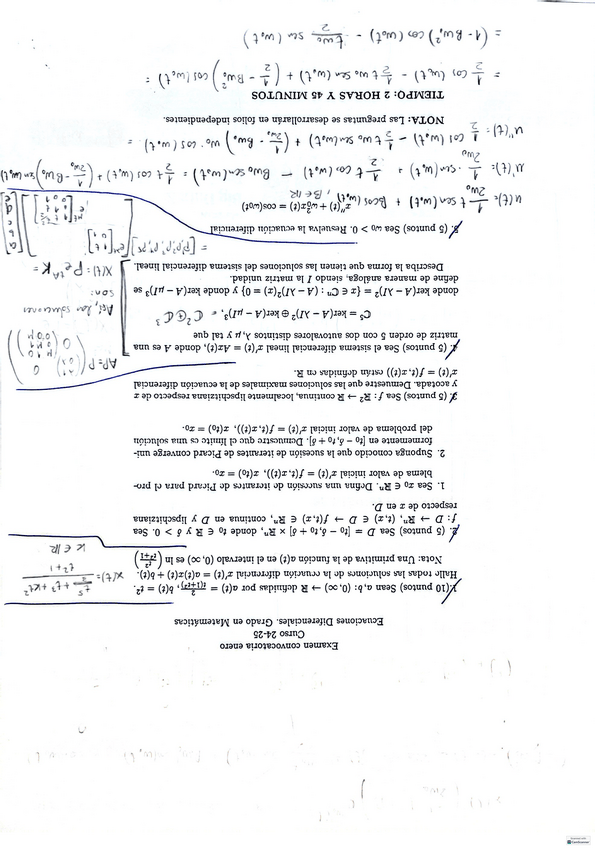 Examen convocatoria enero
Curso 24-25
Ecuaciones Diferenciales. Grado en Matemáticas
1. (10 puntos) Sean a, b: (0, ∞) → R definidas por a(t) = 2/(t(1+t²)), b(t) = t².
Halle todas las soluciones de la ecuación diferencial x'(t) = a(t)x(t) + b(t).
Nota: Una primitiva de la función a(t) en el intervalo (0, ∞) es ln (t²/(t²+1))
K ∈ ℝ
2. (5 puntos) Sea D = [t₀ − δ, t₀ + δ] × Rⁿ, donde t₀ ∈ R y δ > 0. Sea
f: D → Rⁿ, (t, x) ∈ D → f(t, x) ∈ Rⁿ, continua en D y lipschitziana
respecto de x en D.
1. Sea x₀ ∈ Rⁿ. Defina una sucesión de iterantes de Picard para el pro-
blema de valor inicial x'(t) = f(t, x(t)), x(t₀) = x₀.
2. Suponga conocido que la sucesión de iterantes de Picard converge uni-
formemente en [t₀ − δ, t₀ + δ]. Demuestre que el límite es una solución
del problema de valor inicial x'(t) = f(t, x(t)), x(t₀) = x₀.
3. (5 puntos) Sea f: R² → R continua, localmente lipschitziana respecto de x
y acotada. Demuestre que las soluciones maximales de la ecuación diferencial
x'(t) = f(t, x(t)) están definidas en R.
4. (5 puntos) Sea el sistema diferencial lineal x'(t) = Ax(t), donde A es una
matriz de orden 5 con dos autovalores distintos λ, μ y tal que
C⁵ = ker(A − λI)² ⊕ ker(A − μI)³,
donde ker(A − λI)² = {x ∈ Cⁿ : (A − λI)²(x) = 0} y donde ker(A − μI)³ se
define de manera análoga, siendo I la matriz unidad.
Describa la forma que tienen las soluciones del sistema diferencial lineal.
AP = P
Así, las soluciones
son:
5. (5 puntos) Sea w₀ > 0. Resuelva la ecuación diferencial
x''(t) + w₀²x(t) = cos(w₀t)
u(t) = 1/(2w₀) t sen(w₀t) + B cos(w₀t), B ∈ ℝ
u'(t) = 1/(2w₀) · sen(w₀t) + 1/2 t cos(w₀t) − Bw₀ sen(w₀t) = 1/2 t cos(w₀t) + (1/(2w₀) − Bw₀) sen(w₀t)
u''(t) = 1/2 cos(w₀t) − 1/2 t w₀ sen(w₀t) + (1/(2w₀) − Bw₀) w₀ · cos(w₀t) =
NOTA: Las preguntas se desarrollarán en folios independientes.
TIEMPO: 2 HORAS Y 45 MINUTOS
= 1/2 cos(w₀t) − 1/2 t w₀ sen(w₀t) + (1/2 − Bw₀²) cos(w₀t) =
= (1 − Bw₀²) cos(w₀t) − tw₀/2 sen(w₀t)